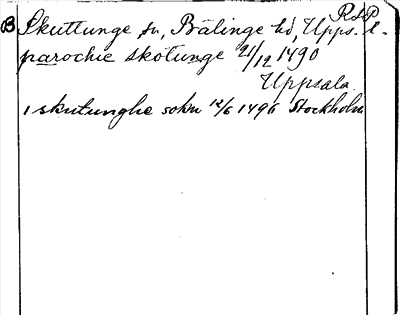 RSP
B Skuttunge sn, Bälinge hd, Upps. l.
parochie skotunge 21/12 1490
Uppsala
i skutunghe sokn 12/6 1496 Stockholm